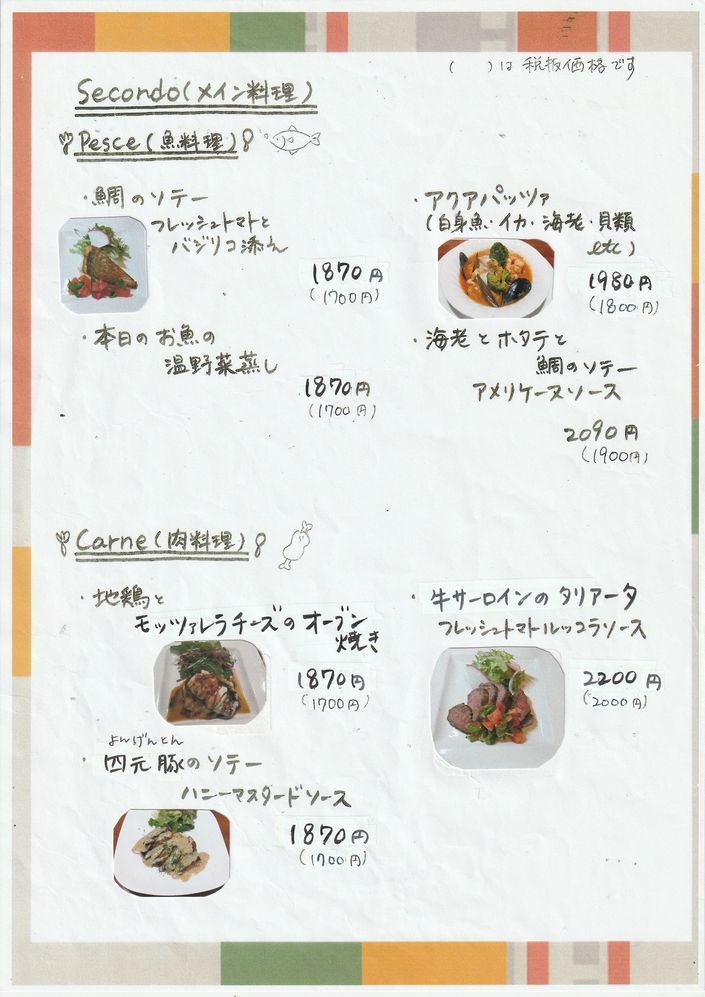 ( )は税抜価格です
Secondo(メイン料理)
Pesce(魚料理)
・鯛のソテー
フレッシュトマトと
バジリコ添え
1870円
(1700円)
・アクアパッツァ
(白身魚・イカ・海老・貝類
etc)
1980円
(1800円)
・本日のお魚の
温野菜蒸し
1870円
(1700円)
・海老とホタテと
鯛のソテー
アメリケーヌソース
2090円
(1900円)
Carne(肉料理)
・地鶏と
モッツァレラチーズのオーブン
焼き
1870円
(1700円)
・牛サーロインのタリアータ
フレッシュトマトルッコラソース
2200円
(2000円)
よんげんとん
・四元豚のソテー
ハニーマスタードソース
1870円
(1700円)